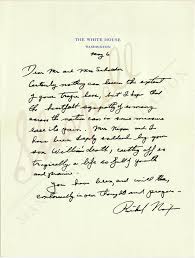 THE WHITE HOUSE
WASHINGTON
May 6
Dear Mr and Mrs Schroeder
Certainly nothing can lessen the extent
of your tragic loss, but I hope that
the heartfelt sympathy of so many
across the nation can in some measure
ease its pain. Mrs Nixon and I
have been deeply saddened by
your son William's death, cutting off so
tragically a life so full of youth
and promise.
You have been and will be
continually in our thoughts and prayers -
Richard Nixon